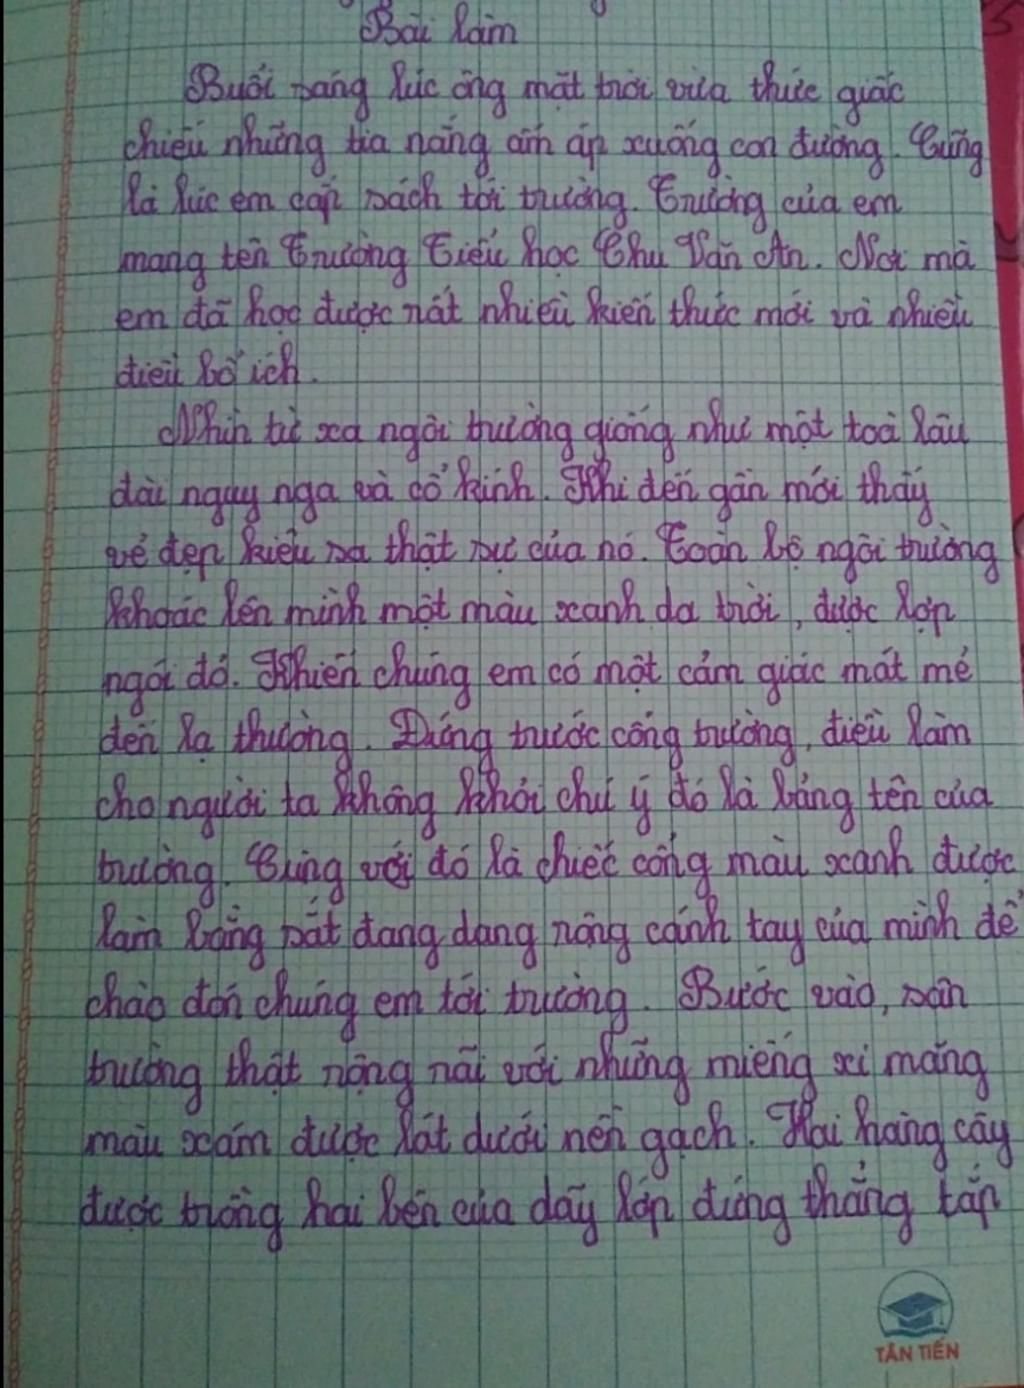 Bài làm
Buổi sáng lúc ông mặt trời vừa thức giấc
chiếu những tia nắng ấm áp xuống con đường. Cũng
là lúc em cắp sách tới trường. Trường của em
mang tên Trường Tiểu học Chu Văn An. Nơi mà
em đã học được rất nhiều kiến thức mới và nhiều
điều bổ ích.
Nhìn từ xa ngôi trường giống như một toà lâu
đài nguy nga và cổ kính. Khi đến gần mới thấy
vẻ đẹp kiều sa thật sự của nó. Toàn bộ ngôi trường
khoác lên mình một màu xanh da trời, được lợp
ngói đỏ. Khiến chúng em có một cảm giác mát mẻ
đến lạ thường. Đứng trước cổng trường, điều làm
cho người ta không khỏi chú ý đó là bảng tên của
trường. Cùng với đó là chiếc cổng màu xanh được
làm bằng sắt đang dang rộng cánh tay của mình để
chào đón chúng em tới trường. Bước vào, sân
trường thật rộng rãi với những miếng xi măng
màu xám được lát dưới nền gạch. Hai hàng cây
được trồng hai bên của dãy lớp đứng thẳng tắp
TÂN TIẾN